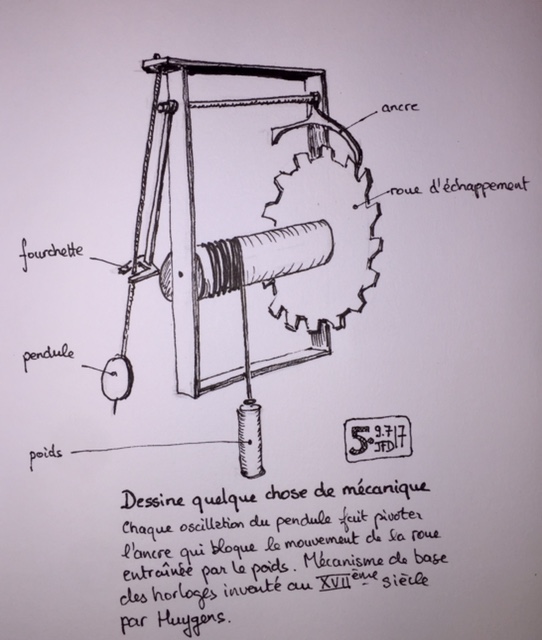 ancre
roue d'échappement
fourchette
pendule
poids
5. 9.7/17
JFD
Dessine quelque chose de mécanique
Chaque oscillation du pendule fait pivoter
l'ancre qui bloque le mouvement de la roue
entraînée par le poids. Mécanisme de base
des horloges inventé au XVIIème siècle
par Huygens.